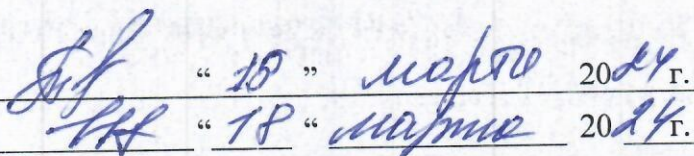 “ 18 ” марта 2024 г.
“ 18 “ марта 2024 г.